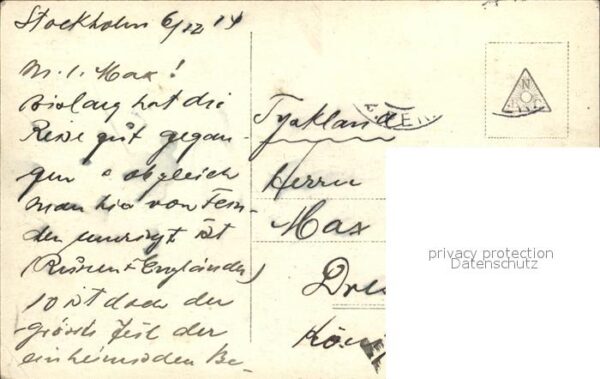 Stockholm 6/12 14
M. l. Max!
Bislang hat die
Reise gut gegan-
gen & obgleich
man hie von Fein-
den umringt ist
(Russen & Engländer)
so ist doch der
grösste Teil der
einheimischen Be-
Tyskland
Herrn
Max
Dres
Köni
N
privacy protection
Datenschutz